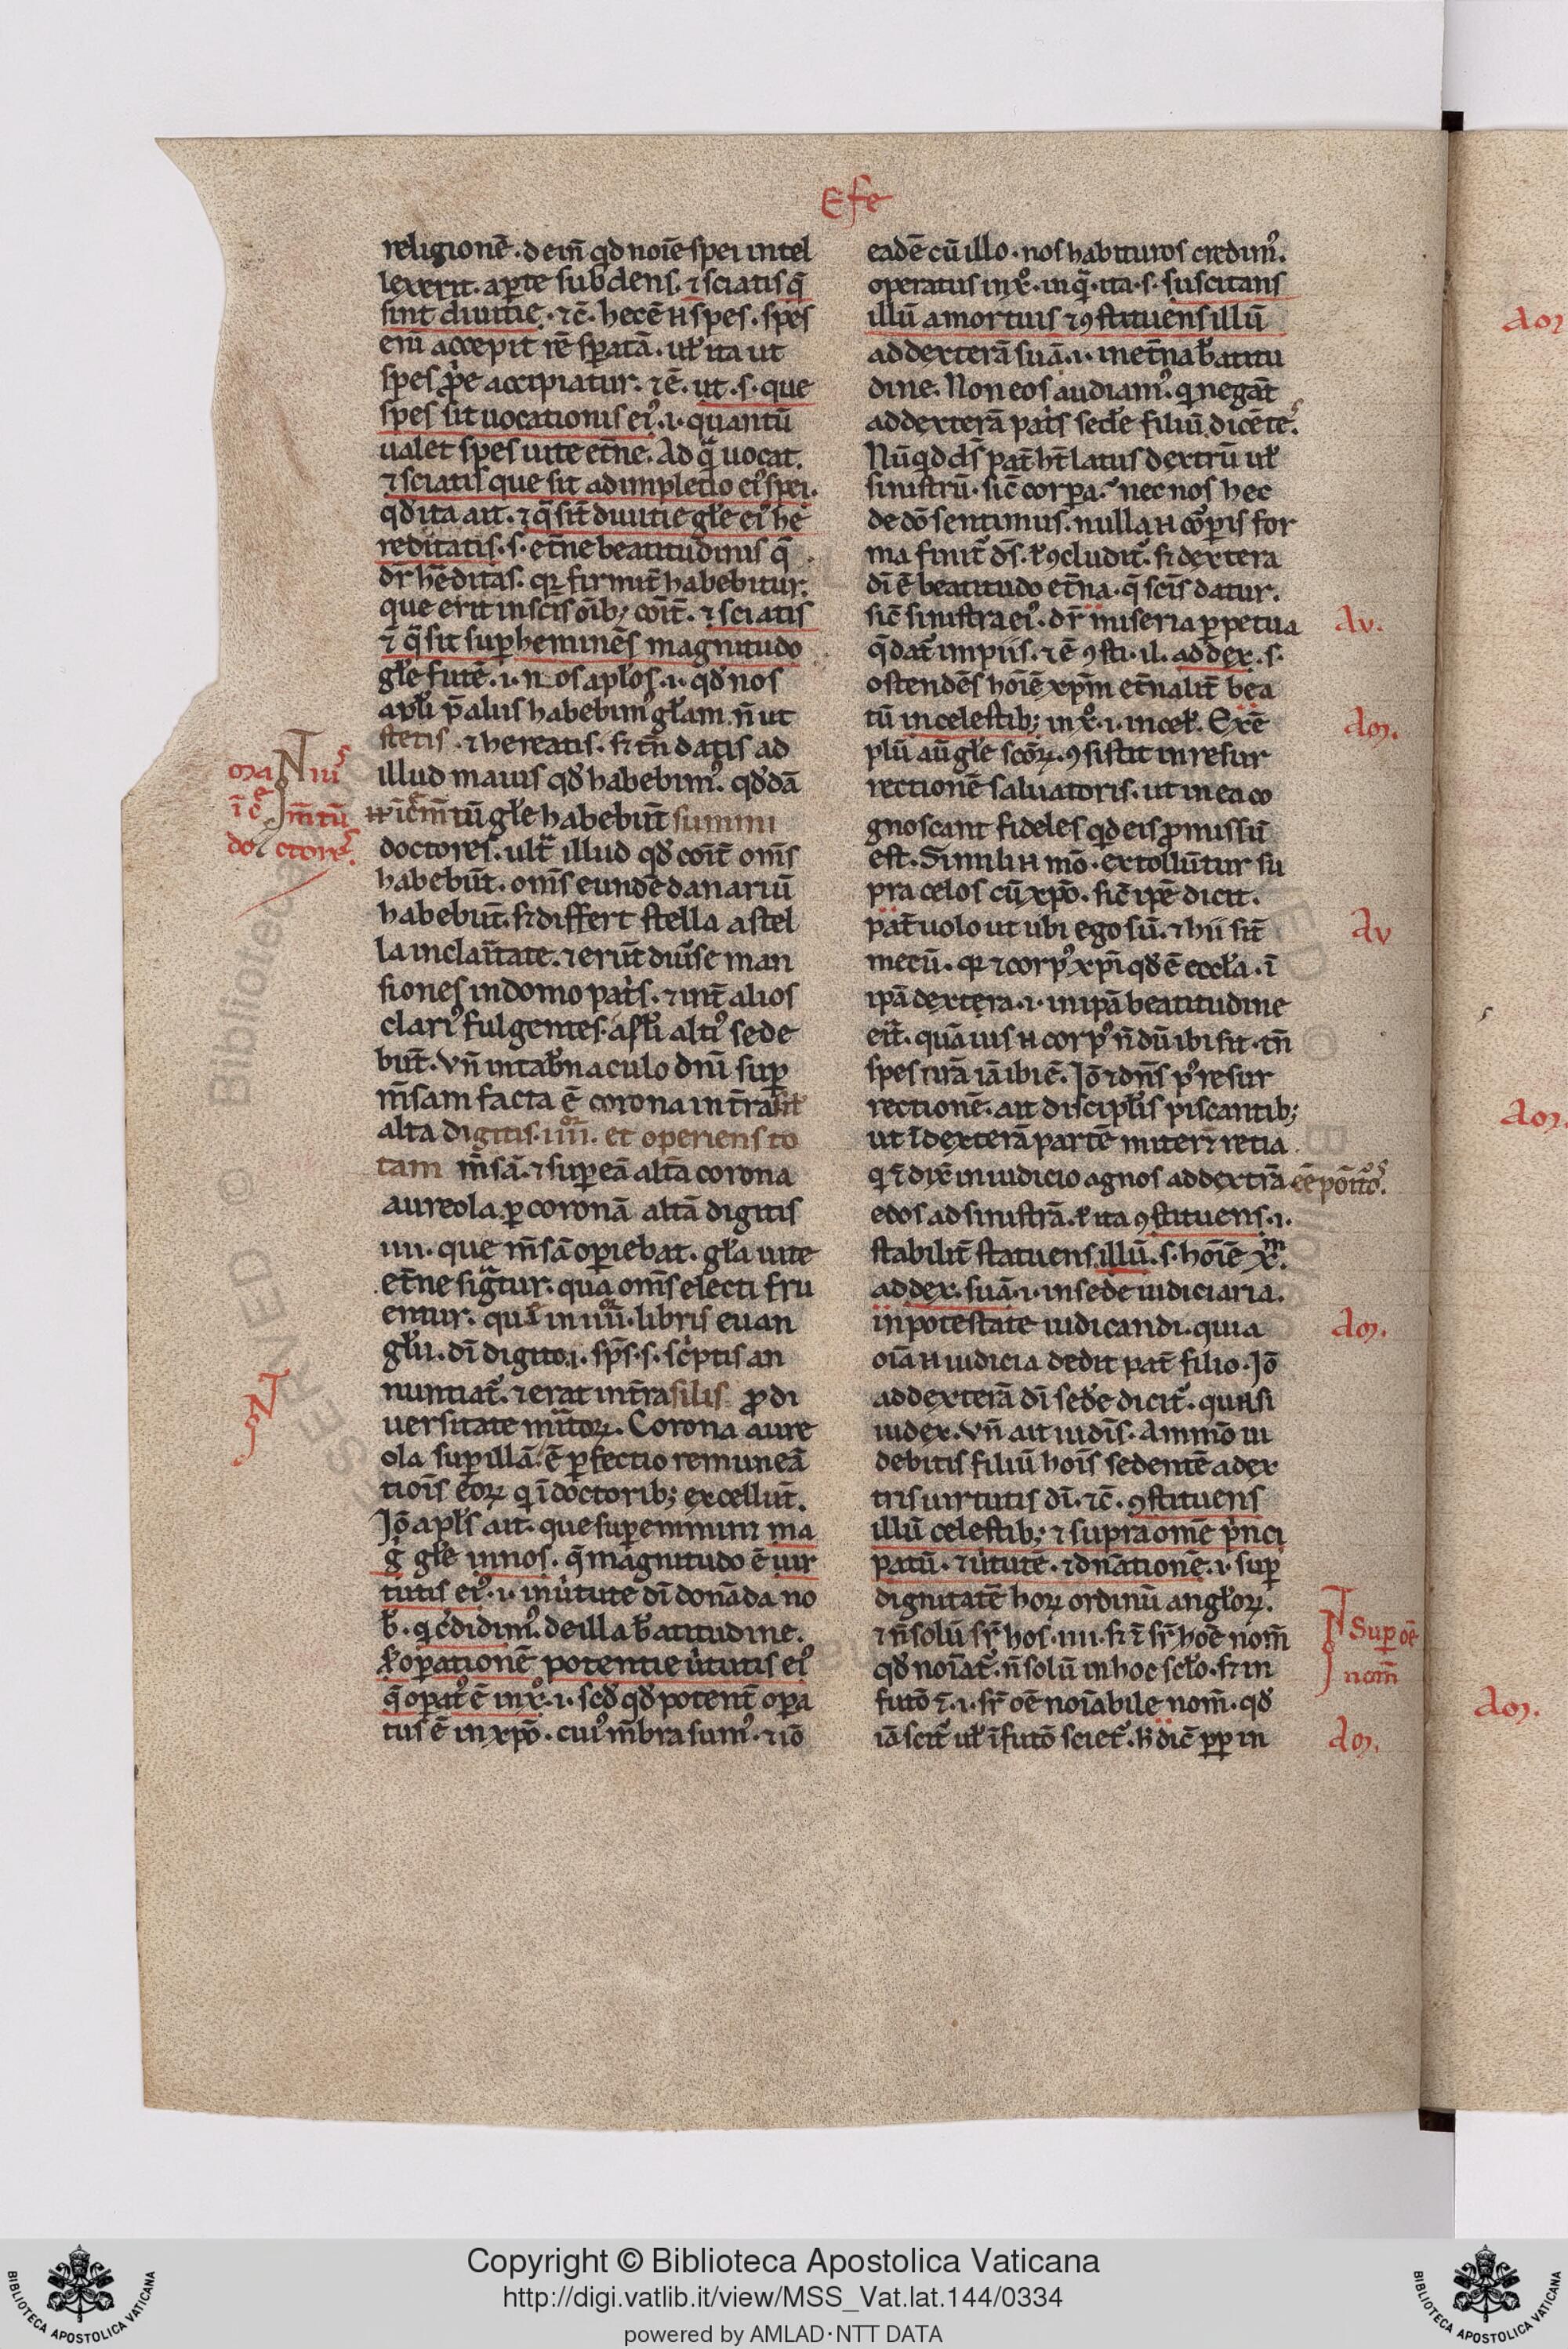 Efe
religionē. dein̄ qd noīe spei intel
lexerit. aꝑte subdens. ⁊ sciatis q̄
sint diuitie. ⁊c̄. hec ē n̄ spes. spes
enī accepit rē sꝑatā. ul̵ ita ut
spes ꝓpe accipiatur. ⁊ ē. ut. s. que
spes sit uocationis eiꝰ. i. quantū
ualet spes uite et̄ne. Ad q̄ uocat.
⁊ sciatis que sit adimpletio eiꝰ spei.
qd̵ ita ait. ⁊ q̄ sit̄ diuitie gl̵e eiꝰ he
reditatis. s. et̄ne beatitudinis q̄
dr̄ h̄editas. qꝛ firmit̄ habebitur.
que erit in scīs oīb; coīt̄. ⁊ sciatis
⁊ q̄ sit suꝑheminēs magnitudo
gl̵e futē. i. n os apl̵os. i. qd̵ nos
apl̵i p̄ aliis habebimꝰ gl̵am. n̄ ut
stetis. ⁊ hereatis. s; tn̄ datis ad
illud maius qd̵ habebimꝰ. qd̵dā
n̄ īcm̄tū gl̵e habebūt summi
doctores. ult̄ illud qd̵ coīt̄ om̄s
habebūt. om̄s eundē danariū
habebūt. s; differt stella a stel
la in claritate. ⁊ erūt diuise man
siones in domo patis. ⁊ int̄ alios
clariꝰ fulgentes. apl̵i altiꝰ sede
būt. Vn̄ in tab̄naculo dnī suꝑ
m̄sam facta ē corona int̄rasil̵
alta digitis. iiii. et operiens to
tam m̄sā. ⁊ suꝑ eā altā corona
aureola. ꝑ coronā altā digitis
iiii. que m̄sā oꝑiebat. gl̵a uite
et̄ne sigt̄ur. qua om̄s electi fru
entur. que in iiii. libris euan
gl̵ii. dī digito. i. sp̄s. s. scͥptis an
nuntiatꝰ. ⁊ erat int̄rasilis ꝓ di
uersitate mitoꝝ. Corona aure
ola suꝑ illā. ē ꝑfectio remuneā
tiois eoꝝ qͥ ī doctorib; excellūt.
Iō apl̵s ait. que suꝑeminini ma
g̊ gl̵e in nos. q̄ magnitudo ē uir
tutis eiꝰ. i. in ut̄ute dī donāda no
b̄. qͥ c̄didimꝰ. de illa b̄atitudine.
ẜ oꝑationē potentie ut̄utis eiꝰ
q̄ oꝑatꝰ ē in x̄o. i. scd̵ qd̵ potent̄ oꝑa
tus ē in xp̄o. cuiꝰ m̄bra sumꝰ. ⁊ iō
maNiuꝰ
īcē m̄tū
doctoreꝰ.
N
eadē cū illo. nos habituros credimꝰ.
operatus in x̄o. inq̄. ita. s. suscitans
illū a mortuis ⁊ ꝯstituens illū
ad dexterā suā. i. in et̄na b̄atitu
dine. Non eos audiamꝰ. qͥ negāt̄
ad dexterā pat̄s sede̵ filiū. dicēteˢ.
Nūqd ds̄ pat̄ ht̄ latus dextrū ul̵
sinistrū. sic̄ corpa. nec nos hec
de dō sentimus. nulla n̄ coꝑis for
ma finitꝰ ds̄. l̵ ꝯcluditꝰ. s; dextera
dī ē beatitudo et̄na. q̄ scīs datur.
sic̄ sinistra eiꝰ. dr̄ miseria ꝑpetua
q̄ datꝰ impiis. ⁊ ē ꝯsti. il. ad dex. s.
ostendēs hoīē xp̄m et̄nalit̄ bea
tū in celestib; in x̄o. i. in cel̵. Exē
plū aū gl̵e scōꝝ. ꝯsistit in resur
rectionē saluatoris. ut in ea co
gnoscant fideles qd eis ꝓmissū
est. Simili n̄ mō. extollūtur su
pra celos cū xp̄o. sic̄ ip̄e dicit.
pat̄ uolo ut ubi ego sū. ⁊ hii sit̄
mecū. qꝛ ⁊ corpꝰ xp̄i qd̵ ē eccl̵a. ī
ip̄a dextera. i. in ip̄a beatitudine
eit̄. quāuis n̄ corpꝰ n̄dū ibi sit. tn̄
spes nrā iā ibi ē. Iō ⁊ dn̄s pꝰ resur
rectionē. ait discipl̵is piscantib;
ut ī dexterā partē mitter̄ retia
qͥ ⁊ dix̄ in iudicio agnos ad dextrā eē ponēdoˢ.
edos ad sinistrā. l̵ ita ꝯstituens. i.
stabilit̄ statuens illū. s. hoīē x̄m.
ad dex. suā. i. in sede iudiciaria.
in potestate iudicandi. quia
oīa n̄ iudicia dedit pat̄ filio. Iō
ad dexterā dī sede̵ dicitꝰ. quasi
iudex. Vn̄ ait iudīs. Ammō ui
debitis filiū hoīs sedentē a dex
tris uirtutis dī. ⁊c̄. ꝯstituens
illū celestib; ⁊ supra omē pͥnci
patū. ⁊ ut̄utē. ⁊ dn̄ationē. i. suꝑ
dignitatē hoꝝ ordinū angl̵oꝝ.
⁊ n̄ solū sr̄ hos. iiii. s; ⁊ sr̄ hoē nom̄
qd̵ noīatꝰ. n̄ solū in hoc scl̵o. s; ⁊ in
futō ⁊. i. sr̄ oē noīabile nom̄. qd̵
iā scitꝰ ul̵ ī futō scietꝰ. h̄ dic̄ ꝓp in
Av.
Am.
Av
Am.
Suꝑ oē
nom̄
Am.
Copyright © Biblioteca Apostolica Vaticana
http://digi.vatlib.it/view/MSS_Vat.lat.144/0334
powered by AMLAD·NTT DATA
BIBLIOTECA APOSTOLICA VATICANA
BIBLIOTECA APOSTOLICA VATICANA